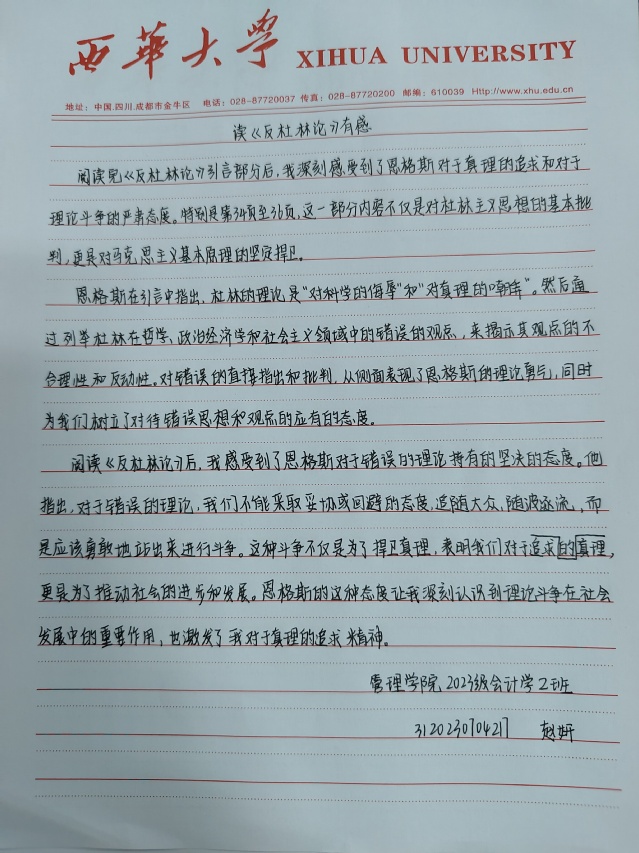 西华大学 XIHUA UNIVERSITY
地址：中国.四川.成都市金牛区 电话：028-87720037 传真：028-87720200 邮编：610039 Http://www.xhu.edu.cn
读《反杜林论》有感
阅读完《反杜林论》引言部分后，我深刻感受到了恩格斯对于真理的追求和对于
理论斗争的严肃态度。特别是第34页至36页，这一部分内容不仅是对杜林主义思想的基本批
判，更是对马克思主义基本原理的坚定捍卫。
恩格斯在引言中指出，杜林的理论是“对科学的侮辱”和“对真理的嘲弄”。然后通
过列举杜林在哲学、政治经济学和社会主义领域中的错误的观点，来揭示其观点的不
合理性和反动性。对错误的直接指出和批判，从侧面表现了恩格斯的理论勇气，同时
为我们树立了对待错误思想和观点的应有的态度。
阅读《反杜林论》后，我感受到了恩格斯对于错误的理论持有的坚决的态度。他
指出，对于错误的理论，我们不能采取妥协或回避的态度，追随大众，随波逐流，而
是应该勇敢地站出来进行斗争。这种斗争不仅是为了捍卫真理，表明我们对于追求的真理，
更是为了推动社会的进步和发展。恩格斯的这种态度让我深刻认识到理论斗争在社会
发展中的重要作用，也激发了我对于真理的追求精神。
管理学院 2023级会计学2班
3120230704217 赵妍